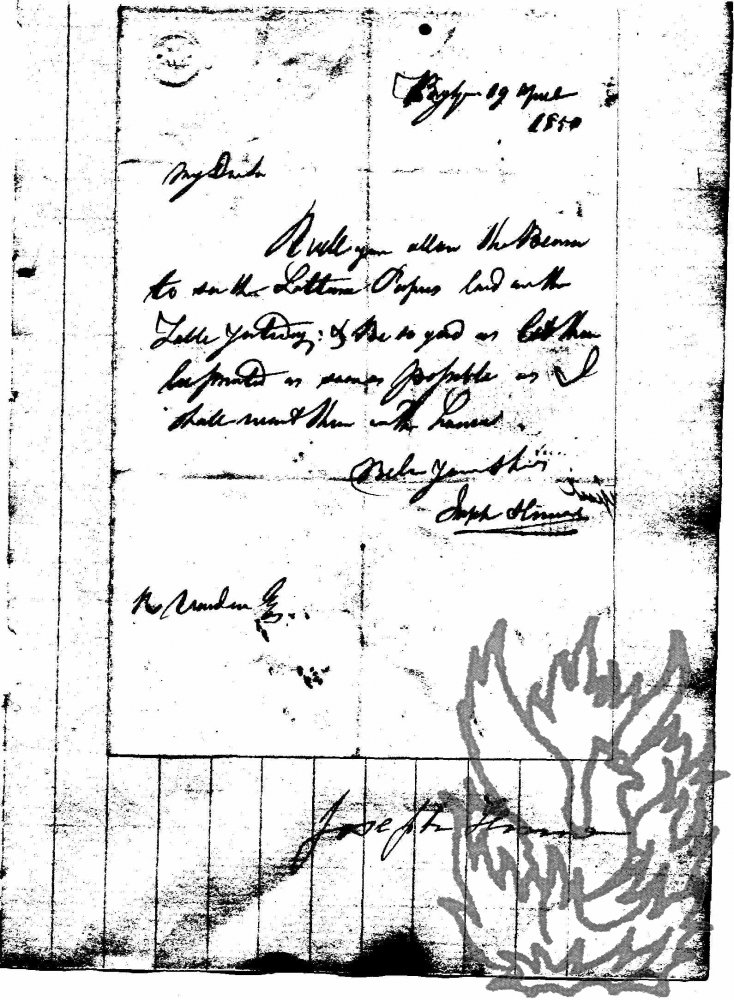 19 April
1850
My Dear Sir
Will you allow the Bearer
to see the Letters & Papers laid on the
Table Yesterday; & Be so good as let them
be printed as soon as possible as I
shall want them in the House.
Yours
Joseph Hume
Esq.
Joseph Hume